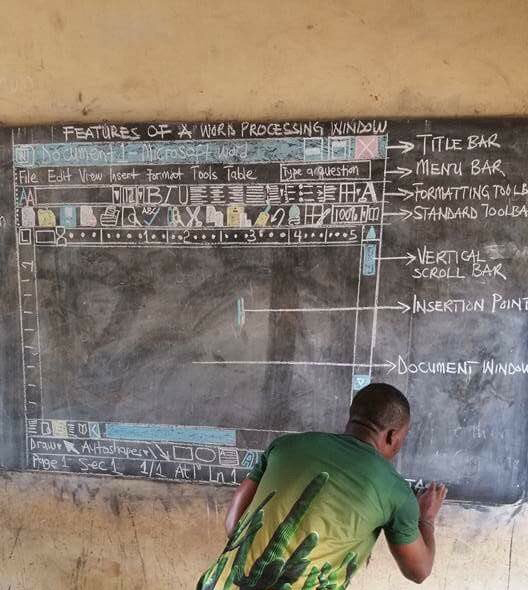 FEATURES OF A WORD PROCESSING WINDOW
W Document 1 - Microsoft Word
TITLE BAR
File Edit View Insert Format Tools Table
Type a question
MENU BAR
B I U
A
FORMATTING TOOLB
ABC
100%
STANDARD TOOLBA
1 2 3 4 5
VERTICAL
SCROLL BAR
INSERTION POINT
DOCUMENT WINDOW
Draw Autoshapes
A
Page 1 Sec 1 1/1 At In 1
TA